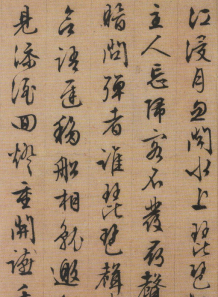 江浸月忽聞水上琵琶
主人忘歸客不發尋聲
暗問彈者誰琵琶聲
語遲移船相邀
見添酒回燈重開讌千